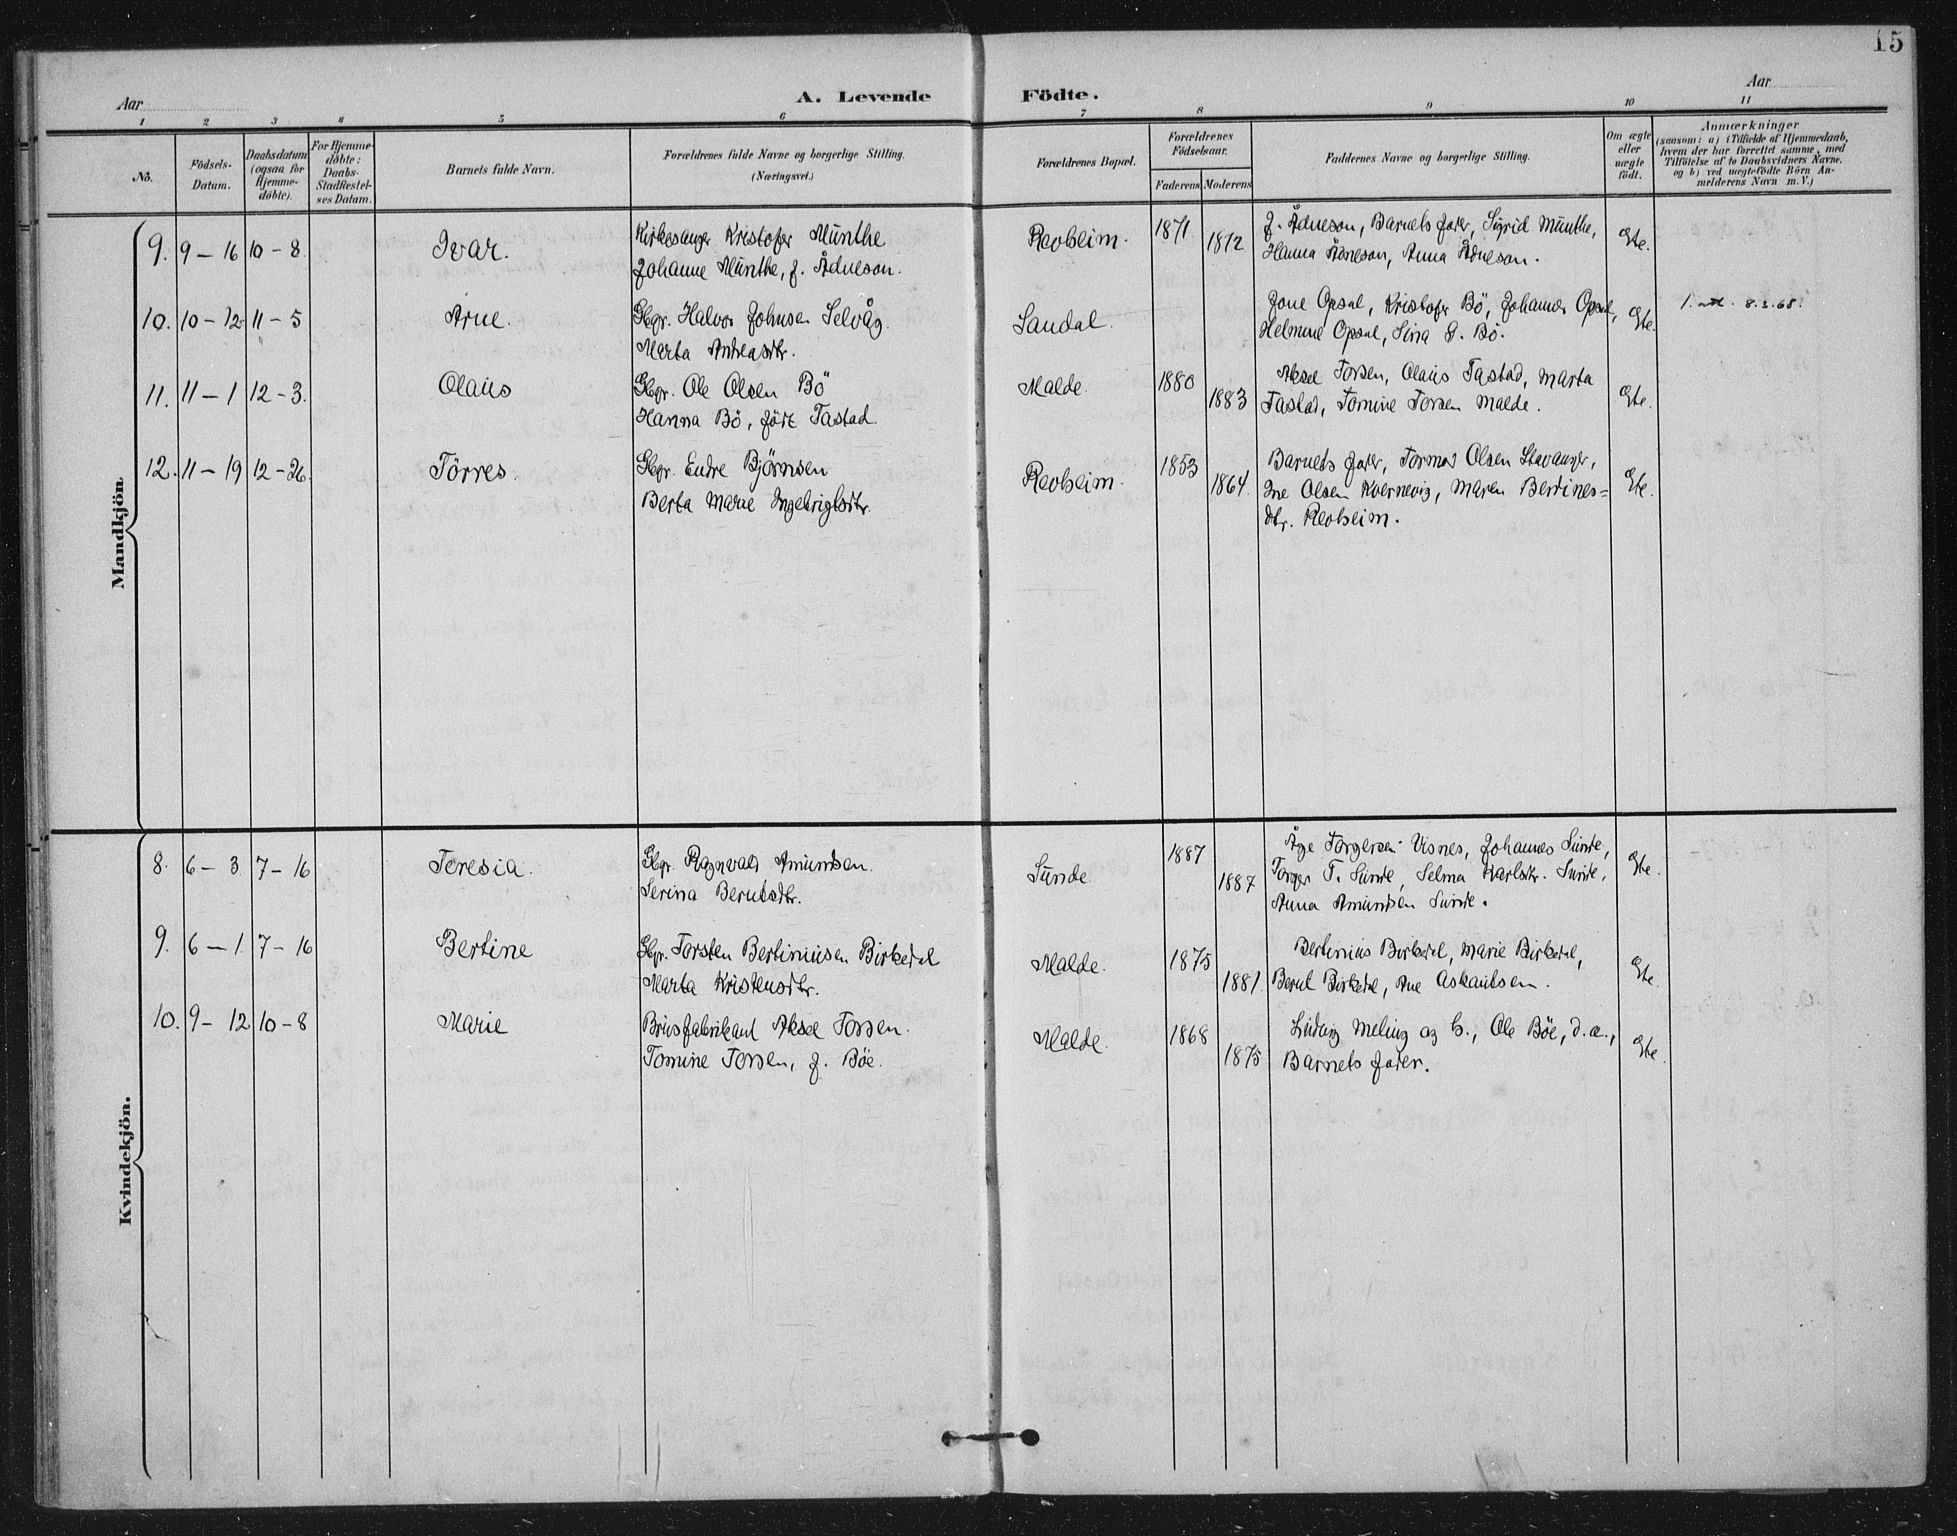 15
Aar
A. Levende Födte.
Aar
1 2 3 4 5 6 7 8 9 10 11
No.
Födsels-
Datum.
Daabsdatum
(ogsaa for
Hjemme-
döbte).
For Hjemme-
döbte:
Daabs-
Stadfæstel-
ses Datum.
Barnets fulde Navn.
Forældrenes fulde Navne og borgerlige Stilling.
(Næringsvei.)
Forældrenes Bopæl.
Forældrenes
Födselsaar.
Faderens Moderens
Faddernes Navne og borgerlige Stilling.
Om ægte
eller
uægte
födt.
Anmærkninger
(saasom: a) i Tilfælde af Hjemmedaab,
hvem der har forrettet samme, med
Tilföielse af to Daabsvidners Navne.
og b) ved uægtefödte Börn An-
melderens Navn m. V.)
Mandkjön.
9. 9 – 16 10 – 8. Ivar. Kirkesanger Kristofer Munthe
Johanne Munthe, f. Ådneson.
Revheim. 1871 1872
J. Ådneson, Barnets fader, Sigrid Munthe,
Hanna Ådneson, Anna Ådneson.
Gte.
10. 10 – 12 11 – 5 Arne. Gbgr. Halvor Johnsen Selvåg.
Marta Andreasdtr.
Sandal.
Jone Opsal, Kristofer Bö, Johannes Opsal,
Helmine Opsal, Sina G. Bö.
Gte.
1. att. 8.3.68.
11. 11 – 1 12 – 3. Olaus Gbgr. Ole Olsen Bö
Hanna Bö, født Tastad.
Malde. 1880 1883
Aksel Torsen, Olaus Tastad, Marta
Tastad, Tomine Torsen Malde.
Gte.
12. 11 – 19 12 – 26. Törres. Gbgr. Endre Bjørnsen
Berta Marie Ingebrigtsdtr.
Revheim. 1853 1864.
Barnets fader, Tormod Olsen Stavanger,
Ine Olsen Kvernevig, Maren Bertines=
dtr. Revheim.
Gte.
Kvindekjön.
8. 6 – 3 7 – 16 Teresia. Gbgr. Ragnvald Amundsen.
Serina Berntsdtr.
Sunde. 1887 1887
Åge Torgersen Visnes, Johannes Sunde,
Torger T. Sunde, Selma Karlsdtr. Sunde,
Anna Amundsen Sunde.
Gte.
9. 6 – 1. 7 – 16 Bertine Gbgr. Torsten Bertiniusen Birkedal
Marta Kristensdtr.
Malde. 1875 1881.
Bertinius Birkedal, Marie Birkedal,
Bernt Birkedal, Ane Askautsen.
Gte.
10. 9 – 12 10 – 8 Marie Brusfabrikant Aksel Torsen.
Tomine Torsen, f. Böe.
Malde. 1868 1875
Ludvig Meling og h., Ole Böe, d. æ.,
Barnets fader.
Gte.